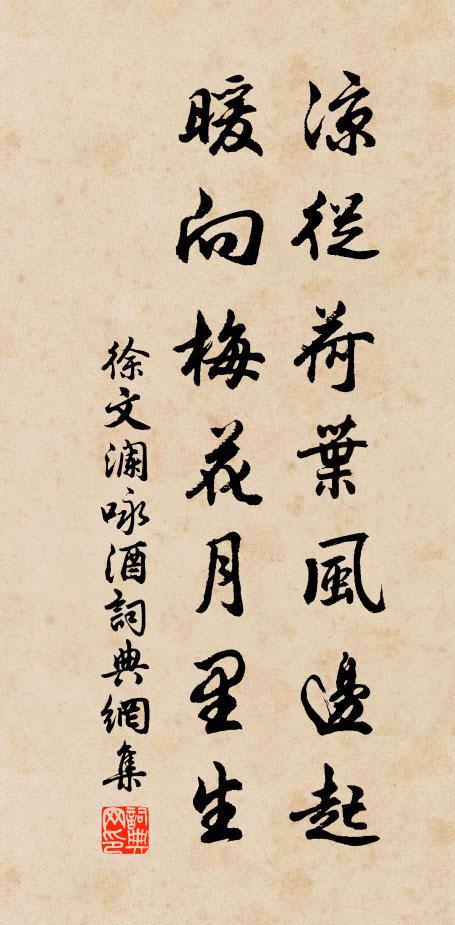 涼從荷葉風邊起
暖向梅花月里生
徐文澜咏酒詞典網集
詞典網印